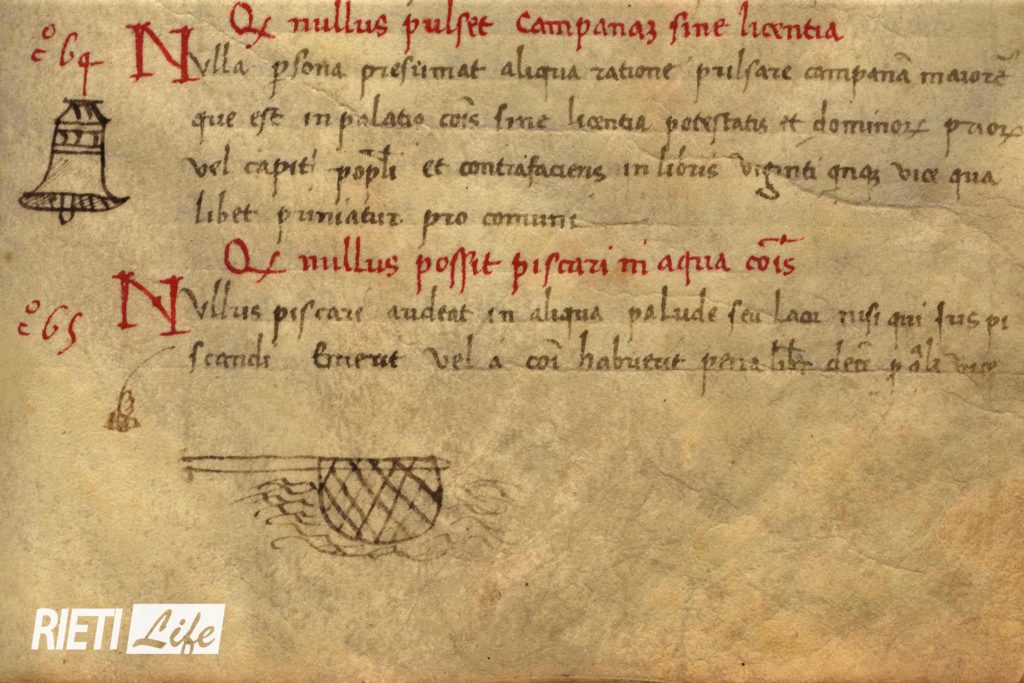 Q nullus pulset campanaz sine licentia
c̊ 64
Nulla psona presumat aliqua ratione pulsare campanā maiorē
que est in palatio cōis sine licentia potestatis et dominorꝝ priorꝝ
vel capiti popli et contrafaciens in libris viginti qnqz vice qua
libet puniatur pro comuni
Q nullus possit piscari in aqua cōis
c̊ 65
Nullus piscari audeat in aliqua palude seu lacu nisi qui ius pi
scandi Emerit vel a cōi habuerit pena libr decē p vice
RIETI Life